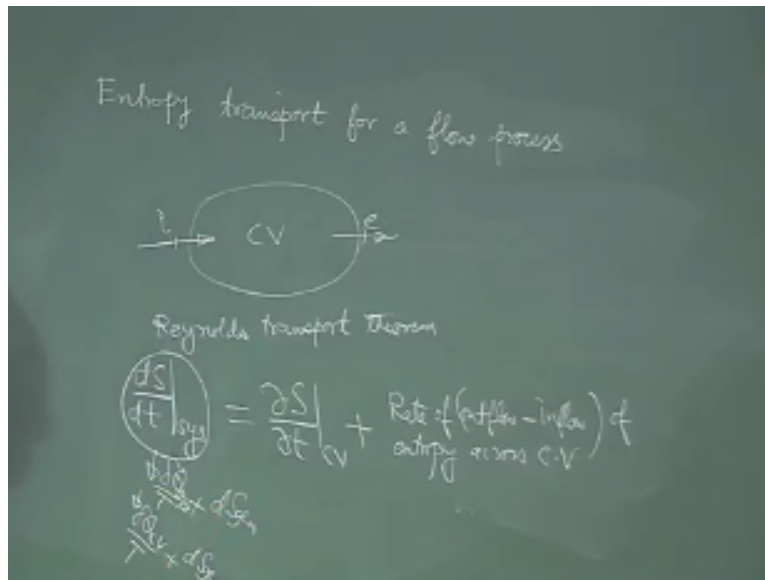 Entropy transport for a flow process
i
CV
e
Reynolds transport theorem
dS/dt|sys = ∂S/∂t|CV + Rate of (outflow - inflow) of
entropy across C.V